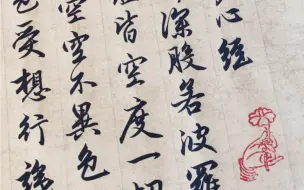 心经
深般若波罗
皆空度一切
空空不異色
色受想行識